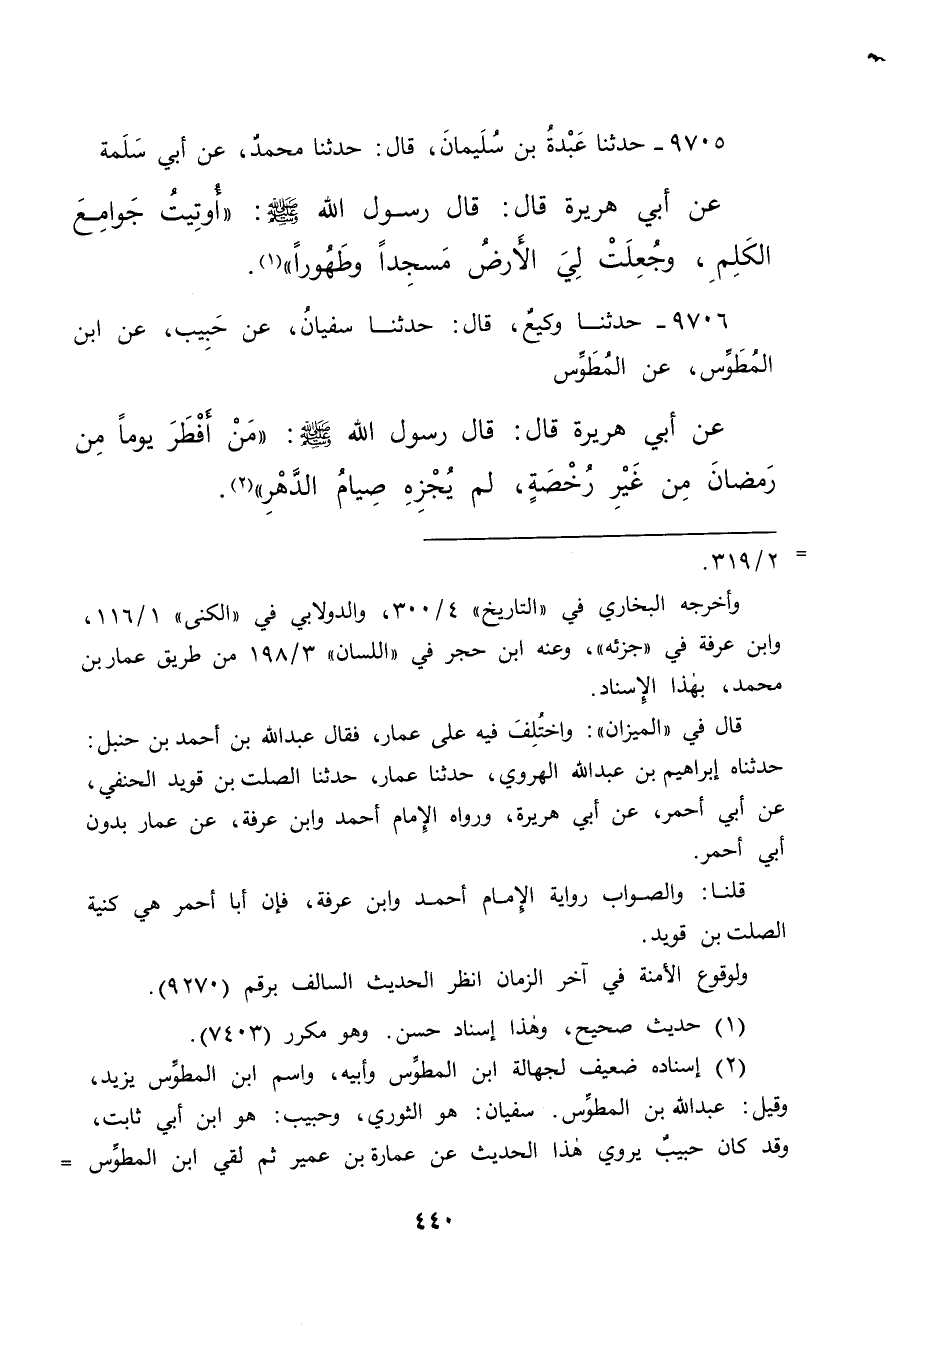 ٩٧٠٥ ـ حدثنا عَبْدةُ بن سُلَيمانَ، قال: حدثنا محمدٌ، عن أبي سَلَمة
عن أبي هريرة قال: قال رسول الله ﷺ: «أُوتِيتُ جَوامِعَ
الكَلِمِ، وجُعِلَتْ لِيَ الأَرضُ مَسجِداً وطَهُوراً»(١).
٩٧٠٦ ـ حدثنا وكيعٌ، قال: حدثنا سفيانُ، عن حَبِيب، عن ابن
المُطَوِّس، عن المُطَوِّس
عن أبي هريرة قال: قال رسول الله ﷺ: «مَنْ أَفْطَرَ يوماً مِن
رَمضانَ مِن غَيْرِ رُخْصَةٍ، لم يُجْزِهِ صِيامُ الدَّهْرِ»(٢).
= ٣١٩/٢.
وأخرجه البخاري في «التاريخ» ٣٠٠/٤، والدولابي في «الكنى» ١١٦/١،
وابن عرفة في «جزئه»، وعنه ابن حجر في «اللسان» ١٩٨/٣ من طريق عمار بن
محمد، بهٰذا الإِسناد.
قال في «الميزان»: واختُلِفَ فيه على عمار، فقال عبدالله بن أحمد بن حنبل:
حدثناه إبراهيم بن عبدالله الهروي، حدثنا عمار، حدثنا الصلت بن قويد الحنفي،
عن أبي أحمر، عن أبي هريرة، ورواه الإِمام أحمد وابن عرفة، عن عمار بدون
أبي أحمر.
قلنا: والصواب رواية الإِمام أحمد وابن عرفة، فإن أبا أحمر هي كنية
الصلت بن قويد.
ولوقوع الأمنة في آخر الزمان انظر الحديث السالف برقم (٩٢٧٠).
(١) حديث صحيح، وهٰذا إسناد حسن. وهو مكرر (٧٤٠٣).
(٢) إسناده ضعيف لجهالة ابن المطوِّس وأبيه، واسم ابن المطوِّس يزيد،
وقيل: عبدالله بن المطوِّس. سفيان: هو الثوري، وحبيب: هو ابن أبي ثابت،
وقد كان حبيبٌ يروي هٰذا الحديث عن عمارة بن عمير ثم لقي ابن المطوِّس =
٤٤٠